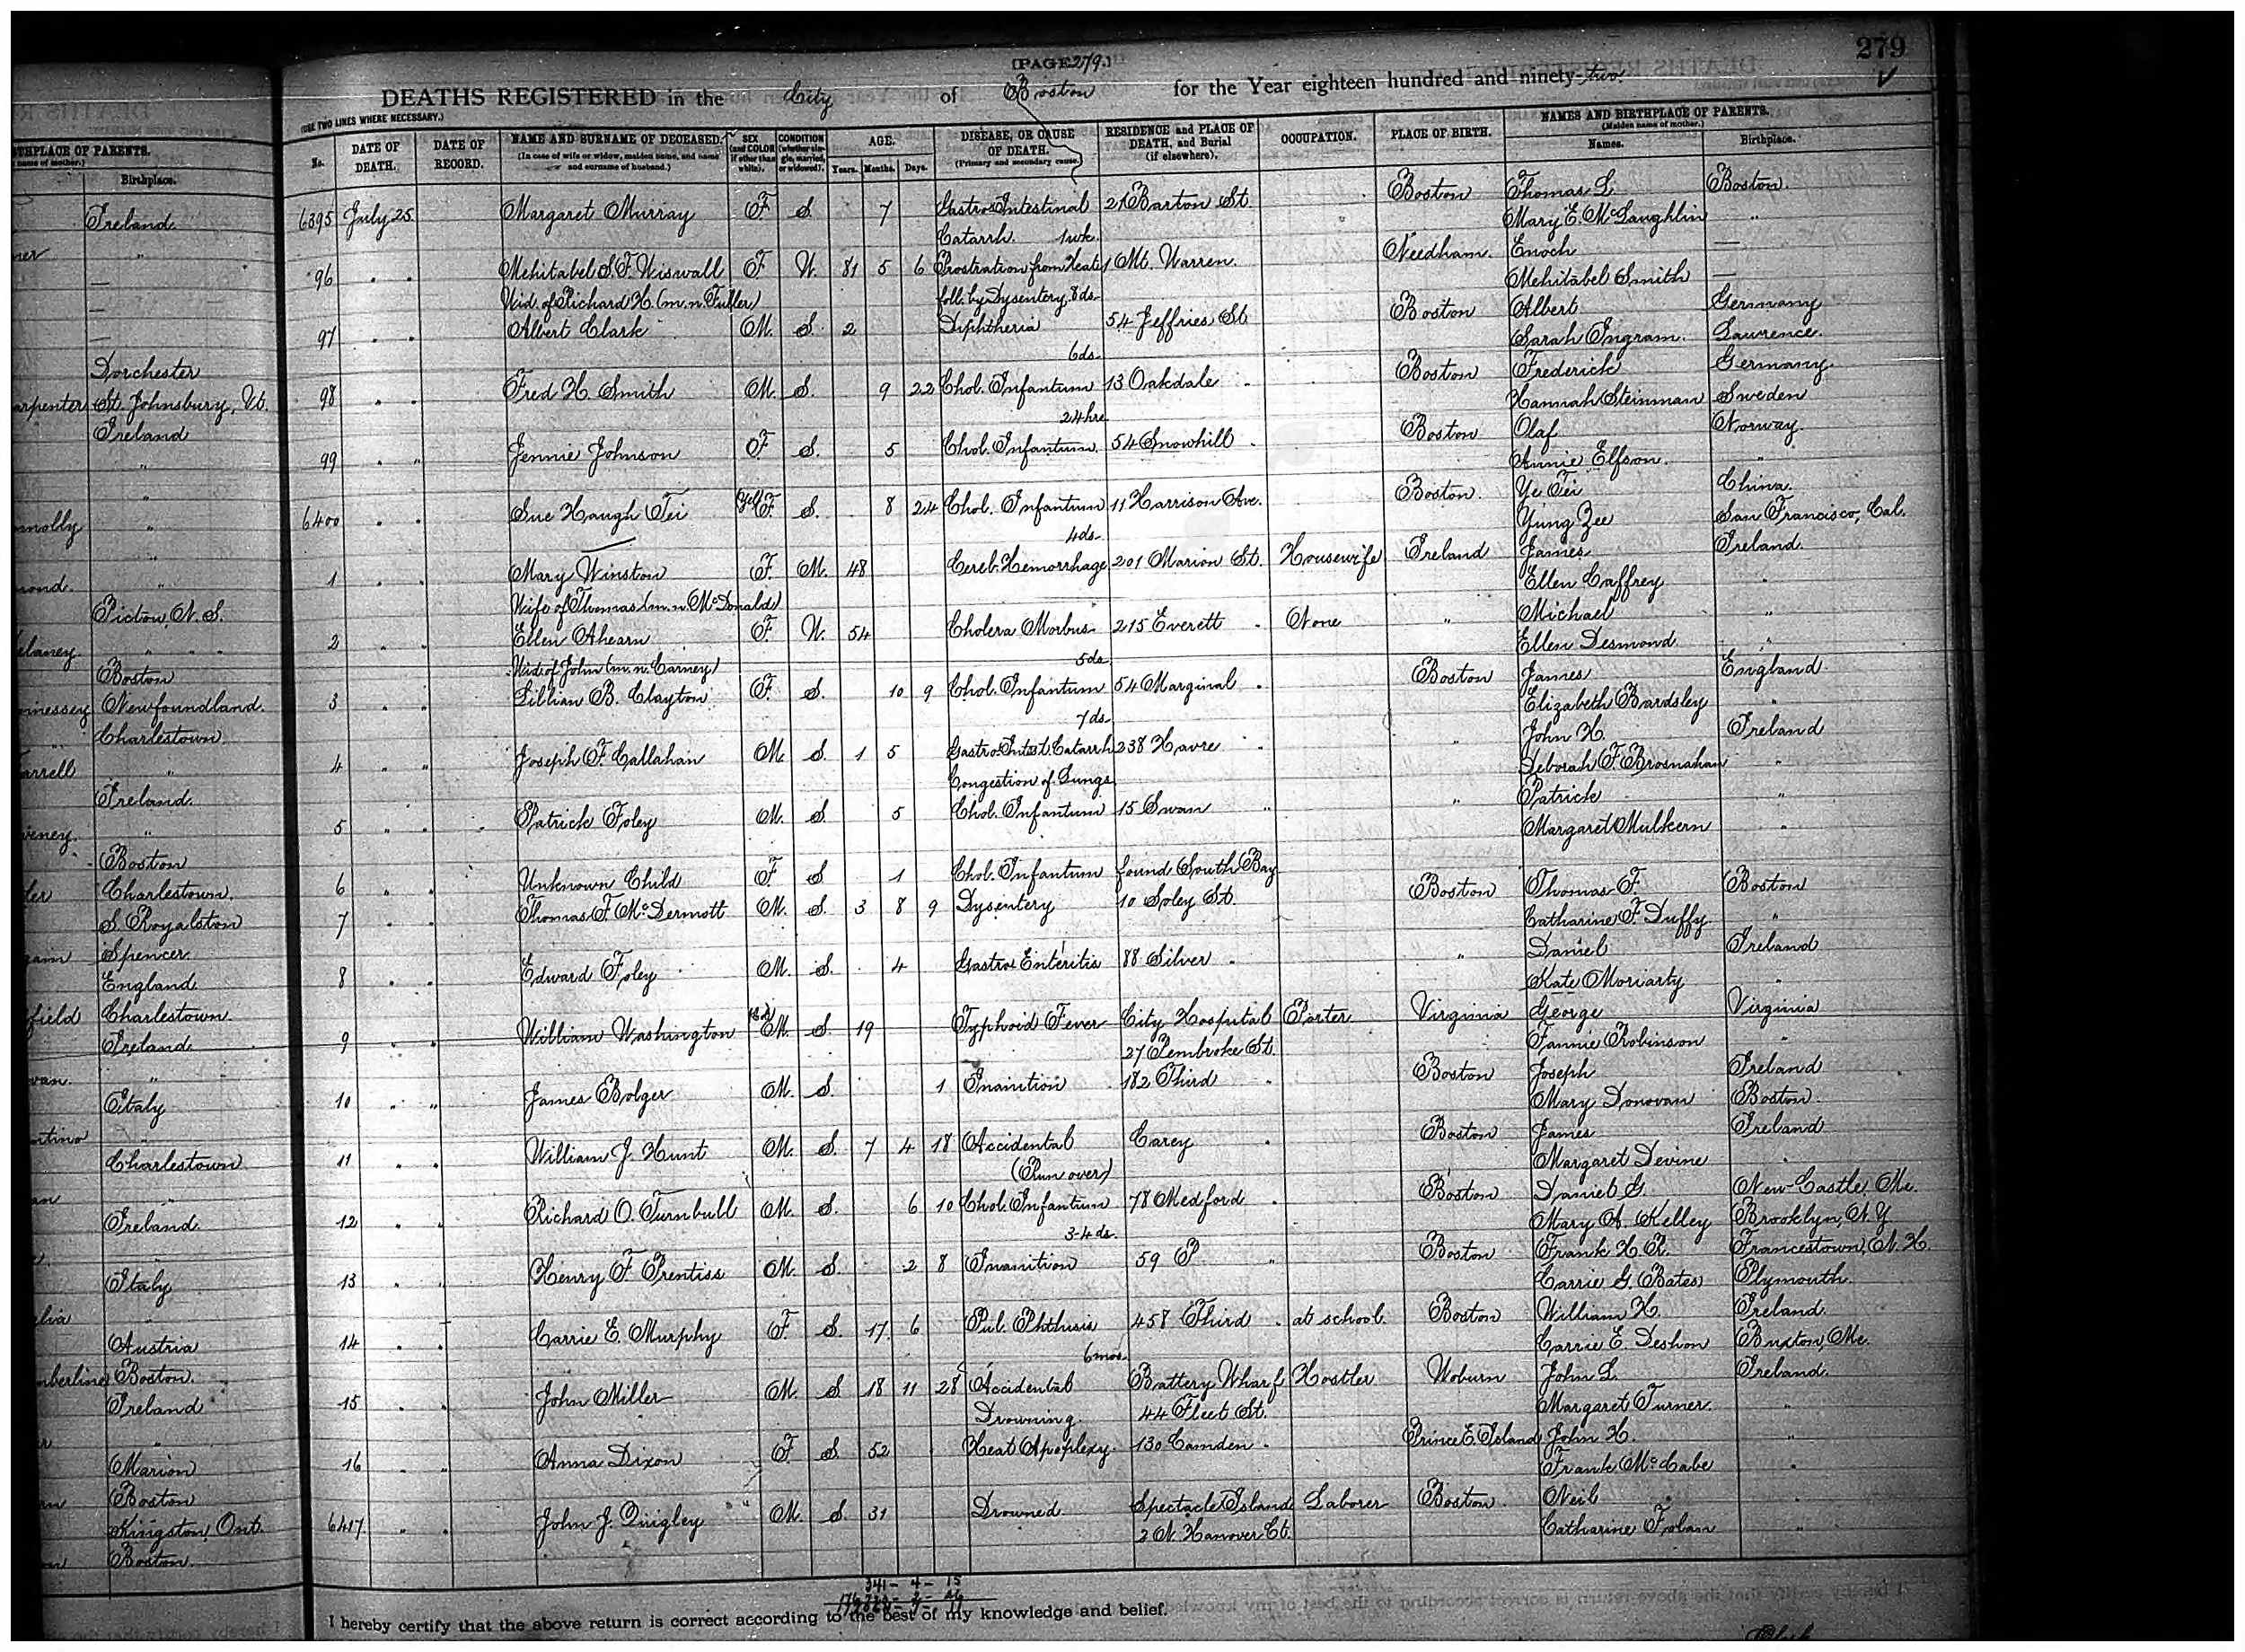 279
[PAGE 279.]
DEATHS REGISTERED in the City of Boston for the Year eighteen hundred and ninety-two
(USE TWO LINES WHERE NECESSARY.)
No. DATE OF DEATH. DATE OF RECORD. NAME AND SURNAME OF DECEASED. (In case of wife or widow, maiden name, and name and surname of husband.) SEX (and COLOR if other than white). CONDITION (whether single, married, or widowed). AGE. Years. Months. Days. DISEASE, OR CAUSE OF DEATH. (Primary and secondary cause.) RESIDENCE and PLACE OF DEATH, and Burial (if elsewhere). OCCUPATION. PLACE OF BIRTH. NAMES AND BIRTHPLACE OF PARENTS. (Maiden name of mother.) Names. Birthplace.
6395 July 25 Margaret Murray F S. 7 Gastro Intestinal 21 Barton St. Boston Thomas L. Boston.
Catarrh. 1wk. Mary E. McLaughlin "
96 " " Mehitabel S. F. Wiswall F W. 81 5 6 Prostration from Heat Mt. Warren. Needham. Enoch —
Wid. of Richard H. (m.n. Fuller) foll. by Dysentery 8ds. Mehitabel Smith —
97 " " Albert Clark M. S. 2 Diphtheria 54 Jeffries St. Boston Albert Germany
6ds. Sarah Ingram. Lawrence.
98 " " Fred H. Smith M. S. 9 22 Chol. Infantum 13 Oakdale " Boston Frederick Germany.
24hrs Hannah Steinman Sweden
99 " " Jennie Johnson F S. 5 Chol. Infantum. 54 Snowhill " Boston Olaf Norway.
Annie Elfson. "
6400 " " Sue Haugh Tei Yell F. S. 8 24 Chol. Infantum 11 Harrison Ave. Boston. Ye Tei China.
4ds. Yung Zee San Francisco, Cal.
1 " " Mary Winston F. M. 48 Cereb. Hemorrhage 201 Marion St. Housewife Ireland James Ireland
Wife of Thomas (m.n. McDonald) Ellen Caffrey "
2 " " Ellen Ahearn F. W. 54 Cholera Morbus 215 Everett " None " Michael "
Wid. of John (m.n. Carney) 5ds. Ellen Desmond "
3 " " Lillian B. Clayton F. S. 10 9 Chol. Infantum 54 Marginal " Boston James England
7ds. Elizabeth Bardsley "
4 " " Joseph F. Callahan M. S. 1 5 Gastro-Intest. Catarrh 238 Havre " " John H. Ireland
Congestion of Lungs Deborah F. Brosnahan "
5 " " Patrick Foley M. S. 5 Chol. Infantum 15 Swan " " Patrick "
Margaret Mulkern "
6 " " Unknown Child F S 1 Chol. Infantum found South Bay
7 " " Thomas F. McDermott M. S. 3 8 9 Dysentery 10 Soley St. Boston Thomas F. Boston
Catharine F. Duffy "
8 " " Edward Foley M. S. 4 Gastro Enteritis 88 Silver " " Daniel Ireland
Kate Moriarty "
9 " " William Washington Col. M. S 19 Typhoid Fever City Hospital Porter Virginia George Virginia
27 Pembroke St. Fannie Robinson "
10 " " James Bolger M. S. 1 Inanition 182 Third " Boston Joseph Ireland
Mary Donovan Boston
11 " " William J. Hunt M. S. 7 4 18 Accidental Carey " Boston James Ireland
(Run over) Margaret Devine "
12 " " Richard O. Turnbull M. S. 6 10 Chol. Infantum 78 Medford " Boston Daniel G. New-Castle, Me.
3-4 ds. Mary A. Kelley Brooklyn, N.Y.
13 " " Henry F. Prentiss M. S. 2 8 Inanition 59 P " Boston Frank H. R. Francestown, N.H.
Carrie G. Bates Plymouth.
14 " " Carrie E. Murphy F. S. 17 6 Pul. Phthisis 458 Third " at school. Boston William H. Ireland.
6mos. Carrie E. Deshon Buxton, Me.
15 " " John Miller M. S 18 11 28 Accidental Battery Wharf Hostler Woburn John L. Ireland.
Drowning. 44 Fleet St. Margaret Turner. "
16 " " Anna Dixon F. S 52 Heat Apoplexy. 130 Camden " Prince E. Island John H. "
Frank McCabe "
6417 " " John J. Quigley M. S. 31 Drowned Spectacle Island Laborer Boston. Neil "
2 N. Hanover Ct. Catharine Folan "
341 - 4 - 15
I hereby certify that the above return is correct according to the best of my knowledge and belief.
BIRTHPLACE OF PARENTS.
Birthplace.
Ireland
"
—
—
—
Dorchester
St. Johnsbury, Vt.
Ireland
"
"
"
"
"
Pictou, N.S.
" " "
Boston
Newfoundland.
Charlestown
"
Ireland.
"
Boston
Charlestown.
S. Royalston
Spencer
England
Charlestown.
Ireland
"
Italy
"
Charlestown
"
Ireland.
Italy
"
Austria
Boston.
Ireland
"
Marion
Boston
Kingston, Ont.
Boston.